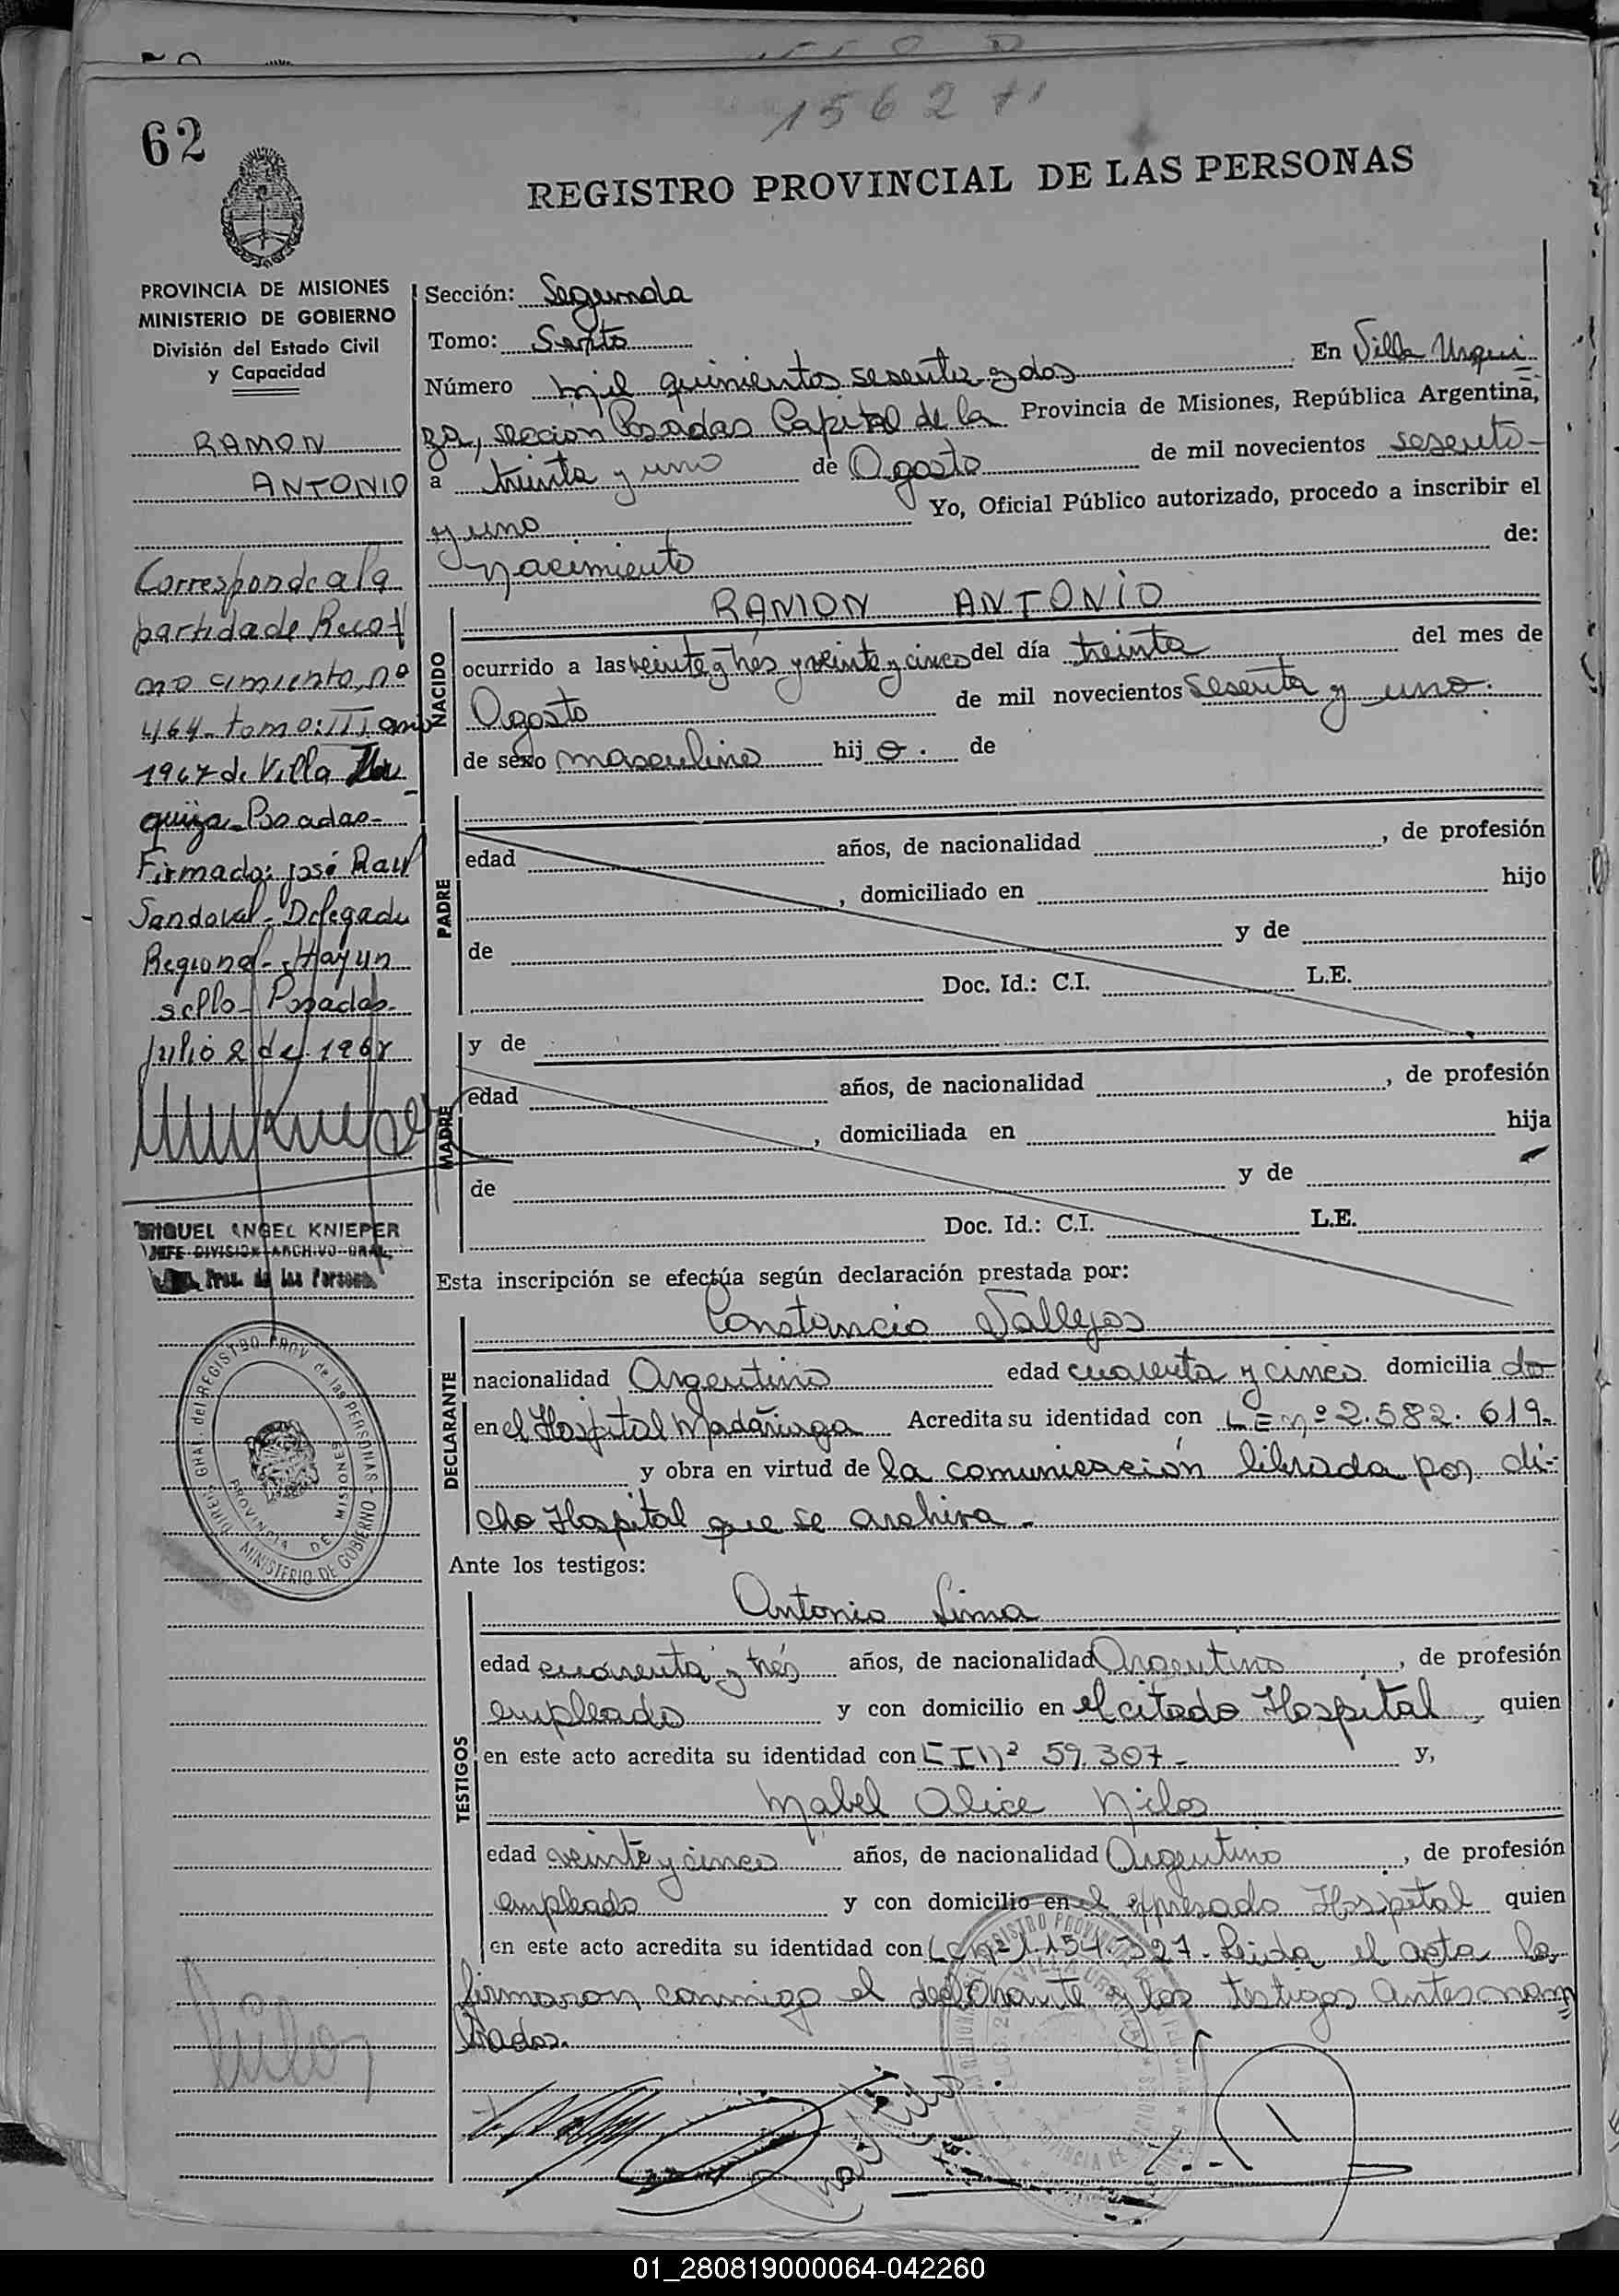 1562
62
REGISTRO PROVINCIAL DE LAS PERSONAS
PROVINCIA DE MISIONES
MINISTERIO DE GOBIERNO
División del Estado Civil
y Capacidad
RAMON
ANTONIO
Corresponde a la
partida de Reco
no cimiento, nº
464 tomo: III año
1967 de Villa Ur
quiza - Posadas -
Firmado: José Raul
Sandoval - Delegado
Regional - Hay un
sello - Posadas -
Julio 2 de 196
MIGUEL ANGEL KNIEPER
JEFE DIVISION ARCHIVO GRAL.
Prov. de las Personas
DIREC. GRAL. del REGISTRO PROV. de las PERSONAS
MINISTERIO DE GOBIERNO
PROVINCIA DE MISIONES
Sección: Segunda
Tomo: Sexto
Número mil quinientos sesenta y dos En Villa Urqui
za, sección Posadas Capital de la Provincia de Misiones, República Argentina,
a treinta y uno de Agosto de mil novecientos sesenta
y uno Yo, Oficial Público autorizado, procedo a inscribir el
nacimiento de:
NACIDO
RAMON ANTONIO
ocurrido a las veinte y trés y veinte y cinco del día treinta del mes de
Agosto de mil novecientos sesenta y uno.
de sexo masculino hijo. de
PADRE
edad años, de nacionalidad , de profesión
, domiciliado en hijo
de y de
Doc. Id.: C.I. L.E.
MADRE
y de
edad años, de nacionalidad , de profesión
, domiciliada en hija
de y de
Doc. Id.: C.I. L.E.
Esta inscripción se efectúa según declaración prestada por:
DECLARANTE
Constancio Vallejos
nacionalidad Argentino edad cuarenta y cinco domiciliado
en el Hospital Madariaga Acredita su identidad con L E nº 2.582.619.
y obra en virtud de la comunicación librada por di-
cho Hospital que se archiva -
Ante los testigos:
TESTIGOS
Antonio Lima
edad cuarenta y trés años, de nacionalidad Argentino , de profesión
empleado y con domicilio en el citado Hospital , quien
en este acto acredita su identidad con C I Nº 59.307 - y,
Mabel Alice Nilos
edad veinte y cinco años, de nacionalidad Argentino , de profesión
empleado y con domicilio en el expresado Hospital quien
en este acto acredita su identidad con L C nº 1.154.327. Leida el acta la
firmaron conmigo el declarante y los testigos antes nom
brados.
01_280819000064-042260